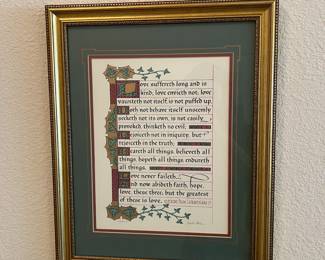 Love suffereth long and is
kind; love envieth not; love
vaunteth not itself, is not puffed up,
Doth not behave itself unseemly
seeketh not its own, is not easily
provoked, thinketh no evil;
Rejoiceth not in iniquity, but
rejoiceth in the truth;
Beareth all things, believeth all
things, hopeth all things, endureth
all things.
Love never faileth.
And now abideth faith, hope,
love, these three; but the greatest
of these is love.